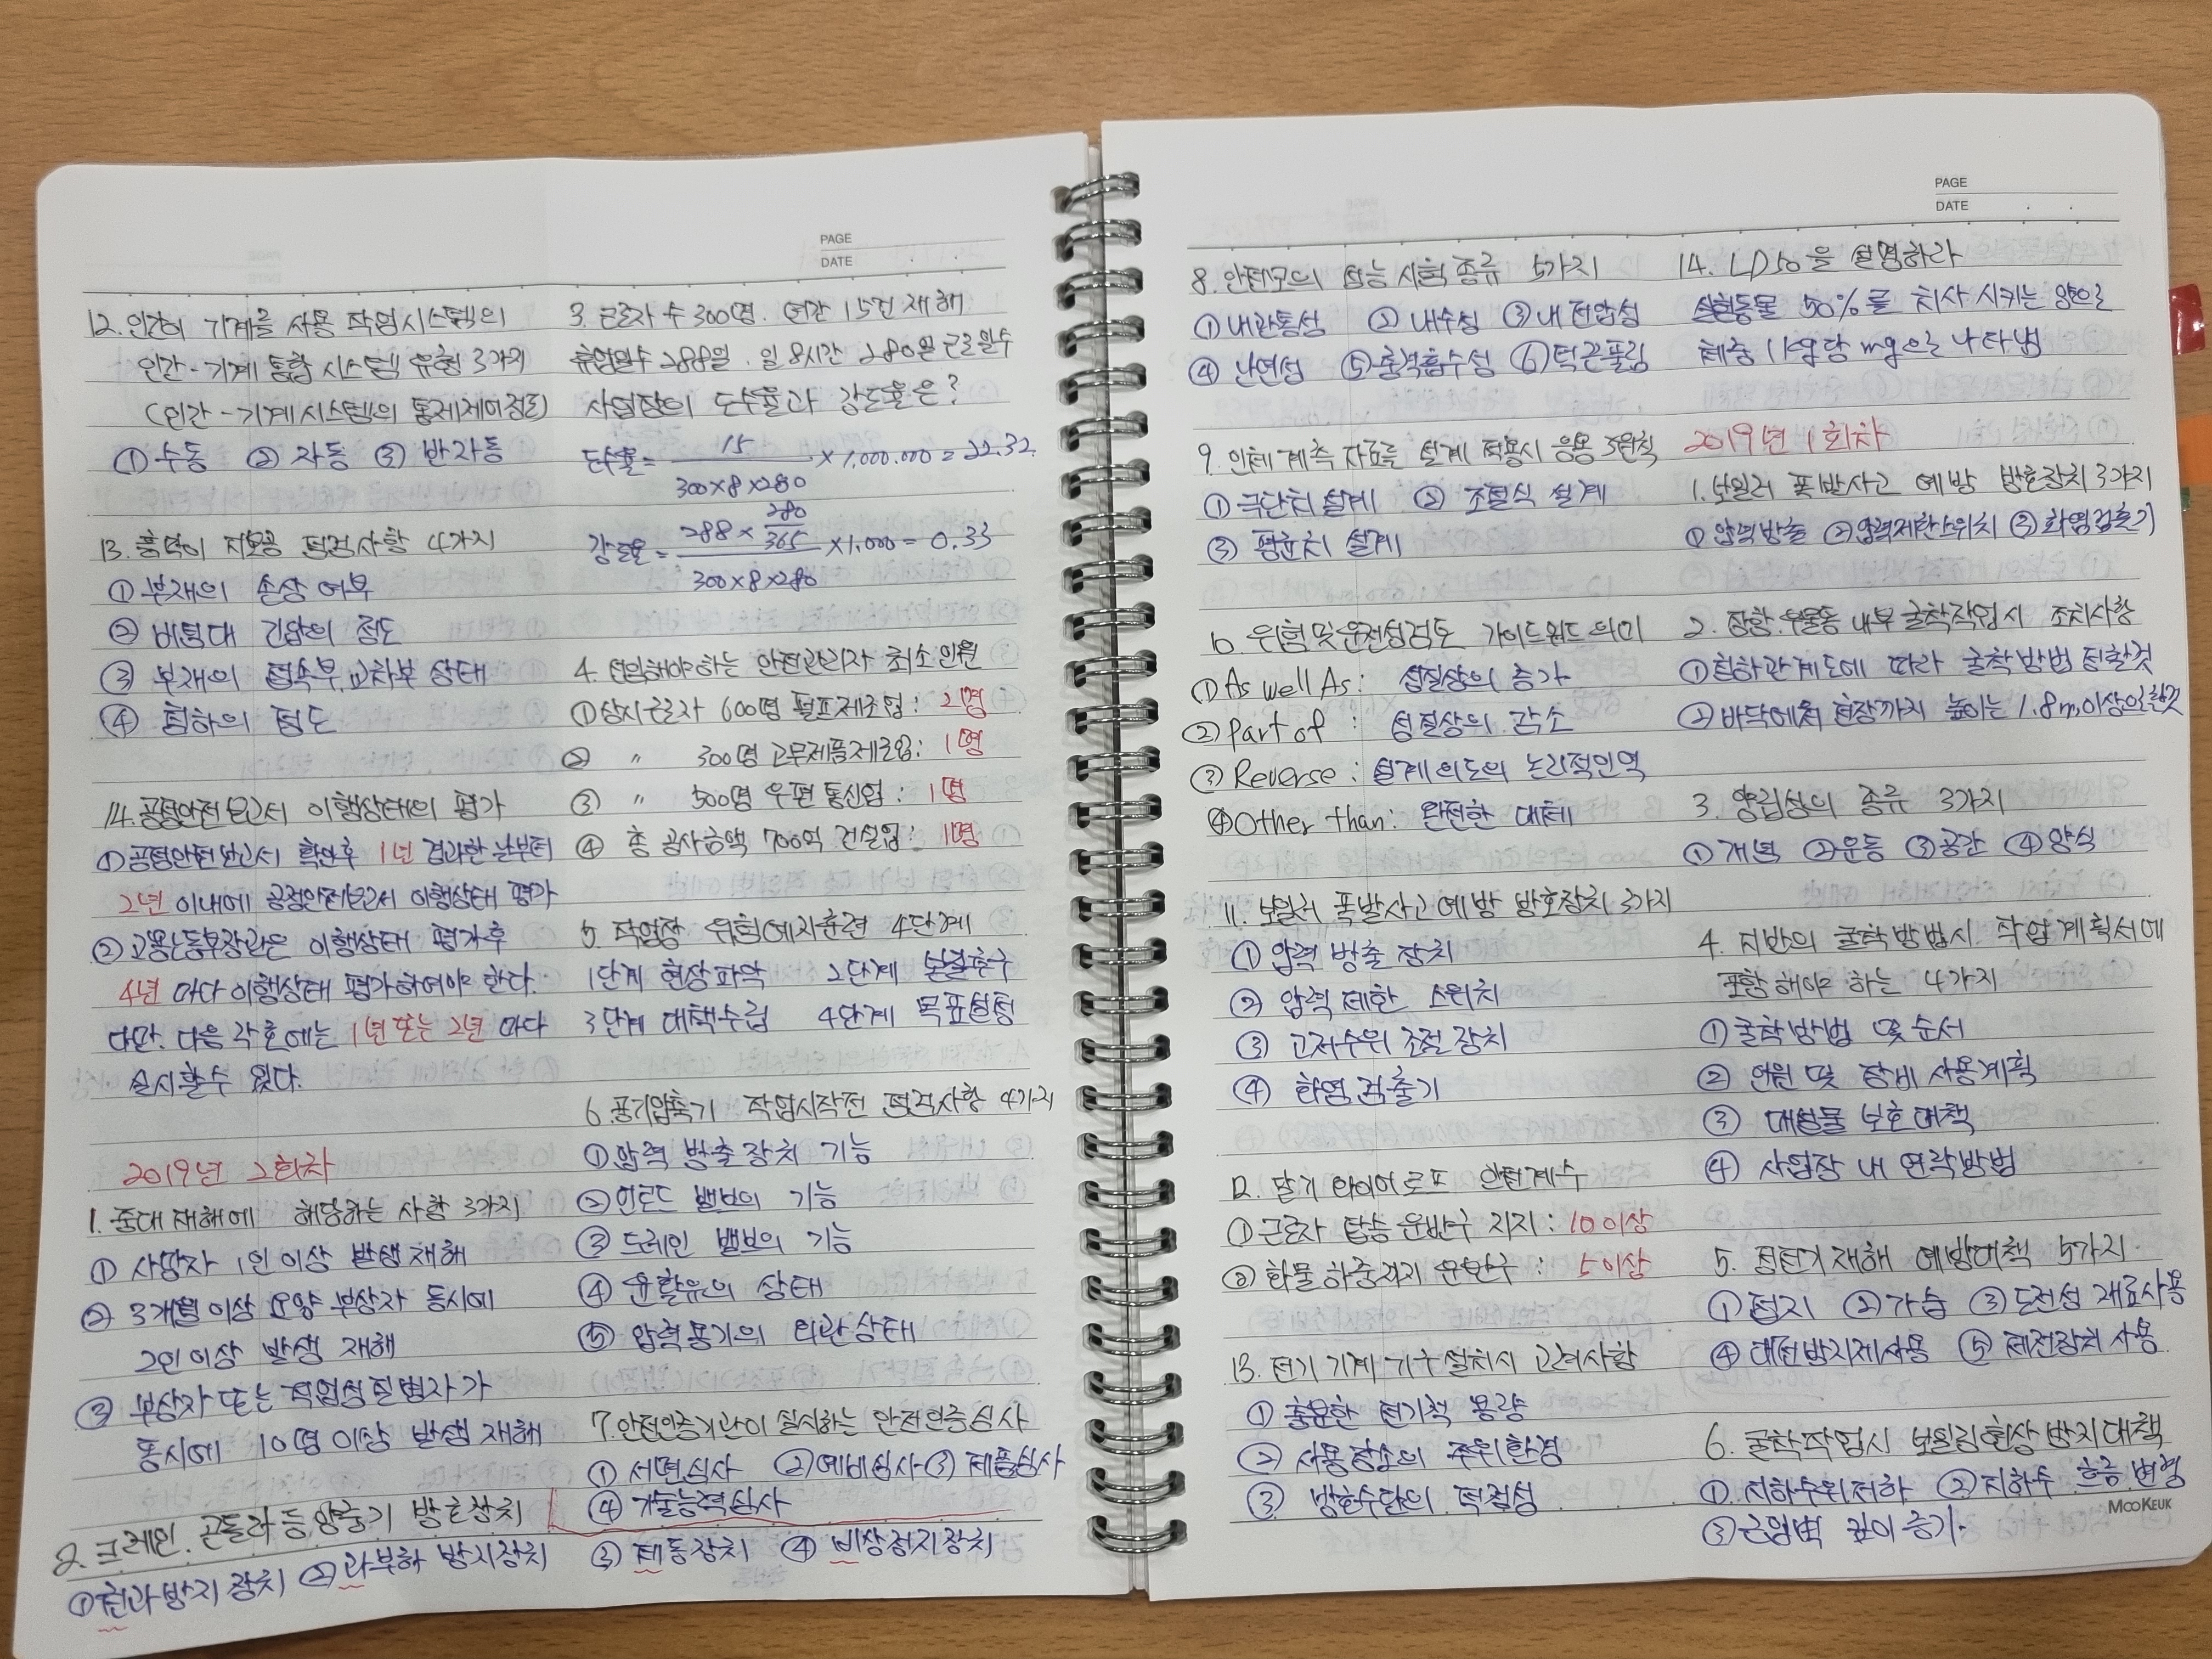 PAGE
DATE . .
12. 인간이 기계를 사용 작업시스템의
인간-기계 통합 시스템 유형 3가지
(인간-기계시스템의 통제제어정도)
① 수동 ② 자동 ③ 반자동
13. 흙막이 지보공 점검사항 4가지
① 부재의 손상 여부
② 버팀대 긴압의 정도
③ 부재의 접속부, 교차부 상태
④ 침하의 정도
14. 공정안전보고서 이행상태의 평가
① 공정안전보고서 확인후 1년 경과한 날부터
2년 이내에 공정안전보고서 이행상태 평가
② 고용노동부장관은 이행상태 평가후
4년 마다 이행상태 평가하여야 한다.
다만. 다음 각호에는 1년 또는 2년 마다
실시할수 있다.
2019년 2회차
1. 중대재해에 해당하는 사항 3가지
① 사망자 1인 이상 발생 재해
② 3개월이상 요양 부상자 동시에
2인 이상 발생 재해
③ 부상자 또는 직업성질병자가
동시에 10명 이상 발생 재해
2. 크레인. 곤돌라 등 양중기 방호장치
① 권과방지장치 ② 과부하 방지장치 ③ 제동장치 ④ 비상정지장치
3. 근로자 수 300명. 연간 15건 재해
휴업일수 288일. 일 8시간 280일 근로일수
사업장의 도수율과 강도율은?
도수율 = 15 / 300×8×280 × 1,000,000 = 22.32.
강도율 = 288 × 280/365 / 300×8×280 × 1,000 = 0.33
4. 선임해야하는 안전관리자 최소인원
① 상시근로자 600명 펄프제조업 : 2명
② 〃 300명 고무제품제조업 : 1명
③ 〃 500명 우편 통신업 : 1명
④ 총 공사금액 700억 건설업 : 1명
5. 작업장 위험예지훈련 4단계
1단계 현상파악 2단계 본질추구
3단계 대책수립 4단계 목표설정
6. 공기압축기 작업시작전 점검사항 4가지
① 압력 방출장치 기능
② 언로드 밸브의 기능
③ 드레인 밸브의 기능
④ 윤활유의 상태
⑤ 압력용기의 외관상태
7. 안전인증기관이 실시하는 안전인증심사
① 서면심사 ② 예비심사 ③ 제품심사
④ 기술능력심사
PAGE
DATE . .
8. 안전모의 성능 시험 종류 5가지
① 내관통성 ② 내수성 ③ 내전압성
④ 난연성 ⑤ 충격흡수성 ⑥ 턱끈풀림
9. 인체 계측 자료를 설계 적용시 응용 3원칙
① 극단치 설계 ② 조절식 설계
③ 평균치 설계
10. 위험및운전성검토 가이드워드 의미
① As well As : 성질상의 증가
② Part of : 성질상의 감소
③ Reverse : 설계의도의 논리적인 역
④ Other than : 완전한 대체
11. 보일러 폭발사고 예방 방호장치 3가지
① 압력 방출 장치
② 압력 제한 스위치
③ 고저수위 조절 장치
④ 화염 검출기
12. 달기 와이어로프 안전계수
① 근로자 탑승 운반구 지지 : 10 이상
② 화물 하중지지 운반구 : 5 이상
13. 전기 기계 기구 설치시 고려사항
① 충분한 전기적 용량
② 사용장소의 주위환경
③ 방호수단의 적정성
14. LD50 을 설명하라
실험동물 50%를 치사 시키는 양으로
체중 1kg당 mg으로 나타냄
2019년 1회차
1. 보일러 폭발사고 예방 방호장치 3가지
① 압력방출 ② 압력제한스위치 ③ 화염검출기
2. 잠함.우물통 내부 굴착작업시 조치사항
① 침하관계도에 따라 굴착방법 정할것
② 바닥에서 천장까지 높이는 1.8m이상으로할것
3. 양립성의 종류 3가지
① 개념 ② 운동 ③ 공간 ④ 양식
4. 지반의 굴착방법시. 작업계획서에
포함해야 하는 4가지
① 굴착방법 및 순서
② 인원 및 장비 사용계획
③ 매설물 보호대책
④ 사업장 내 연락방법
5. 정전기 재해 예방대책 5가지
① 접지 ② 가습 ③ 도전성 재료사용
④ 대전방지제사용 ⑤ 제전장치 사용
6. 굴착작업시 보일링현상 방지대책
① 지하수위저하 ② 지하수 흐름 변경
③ 근입벽 깊이 증가.
MOOKEUK